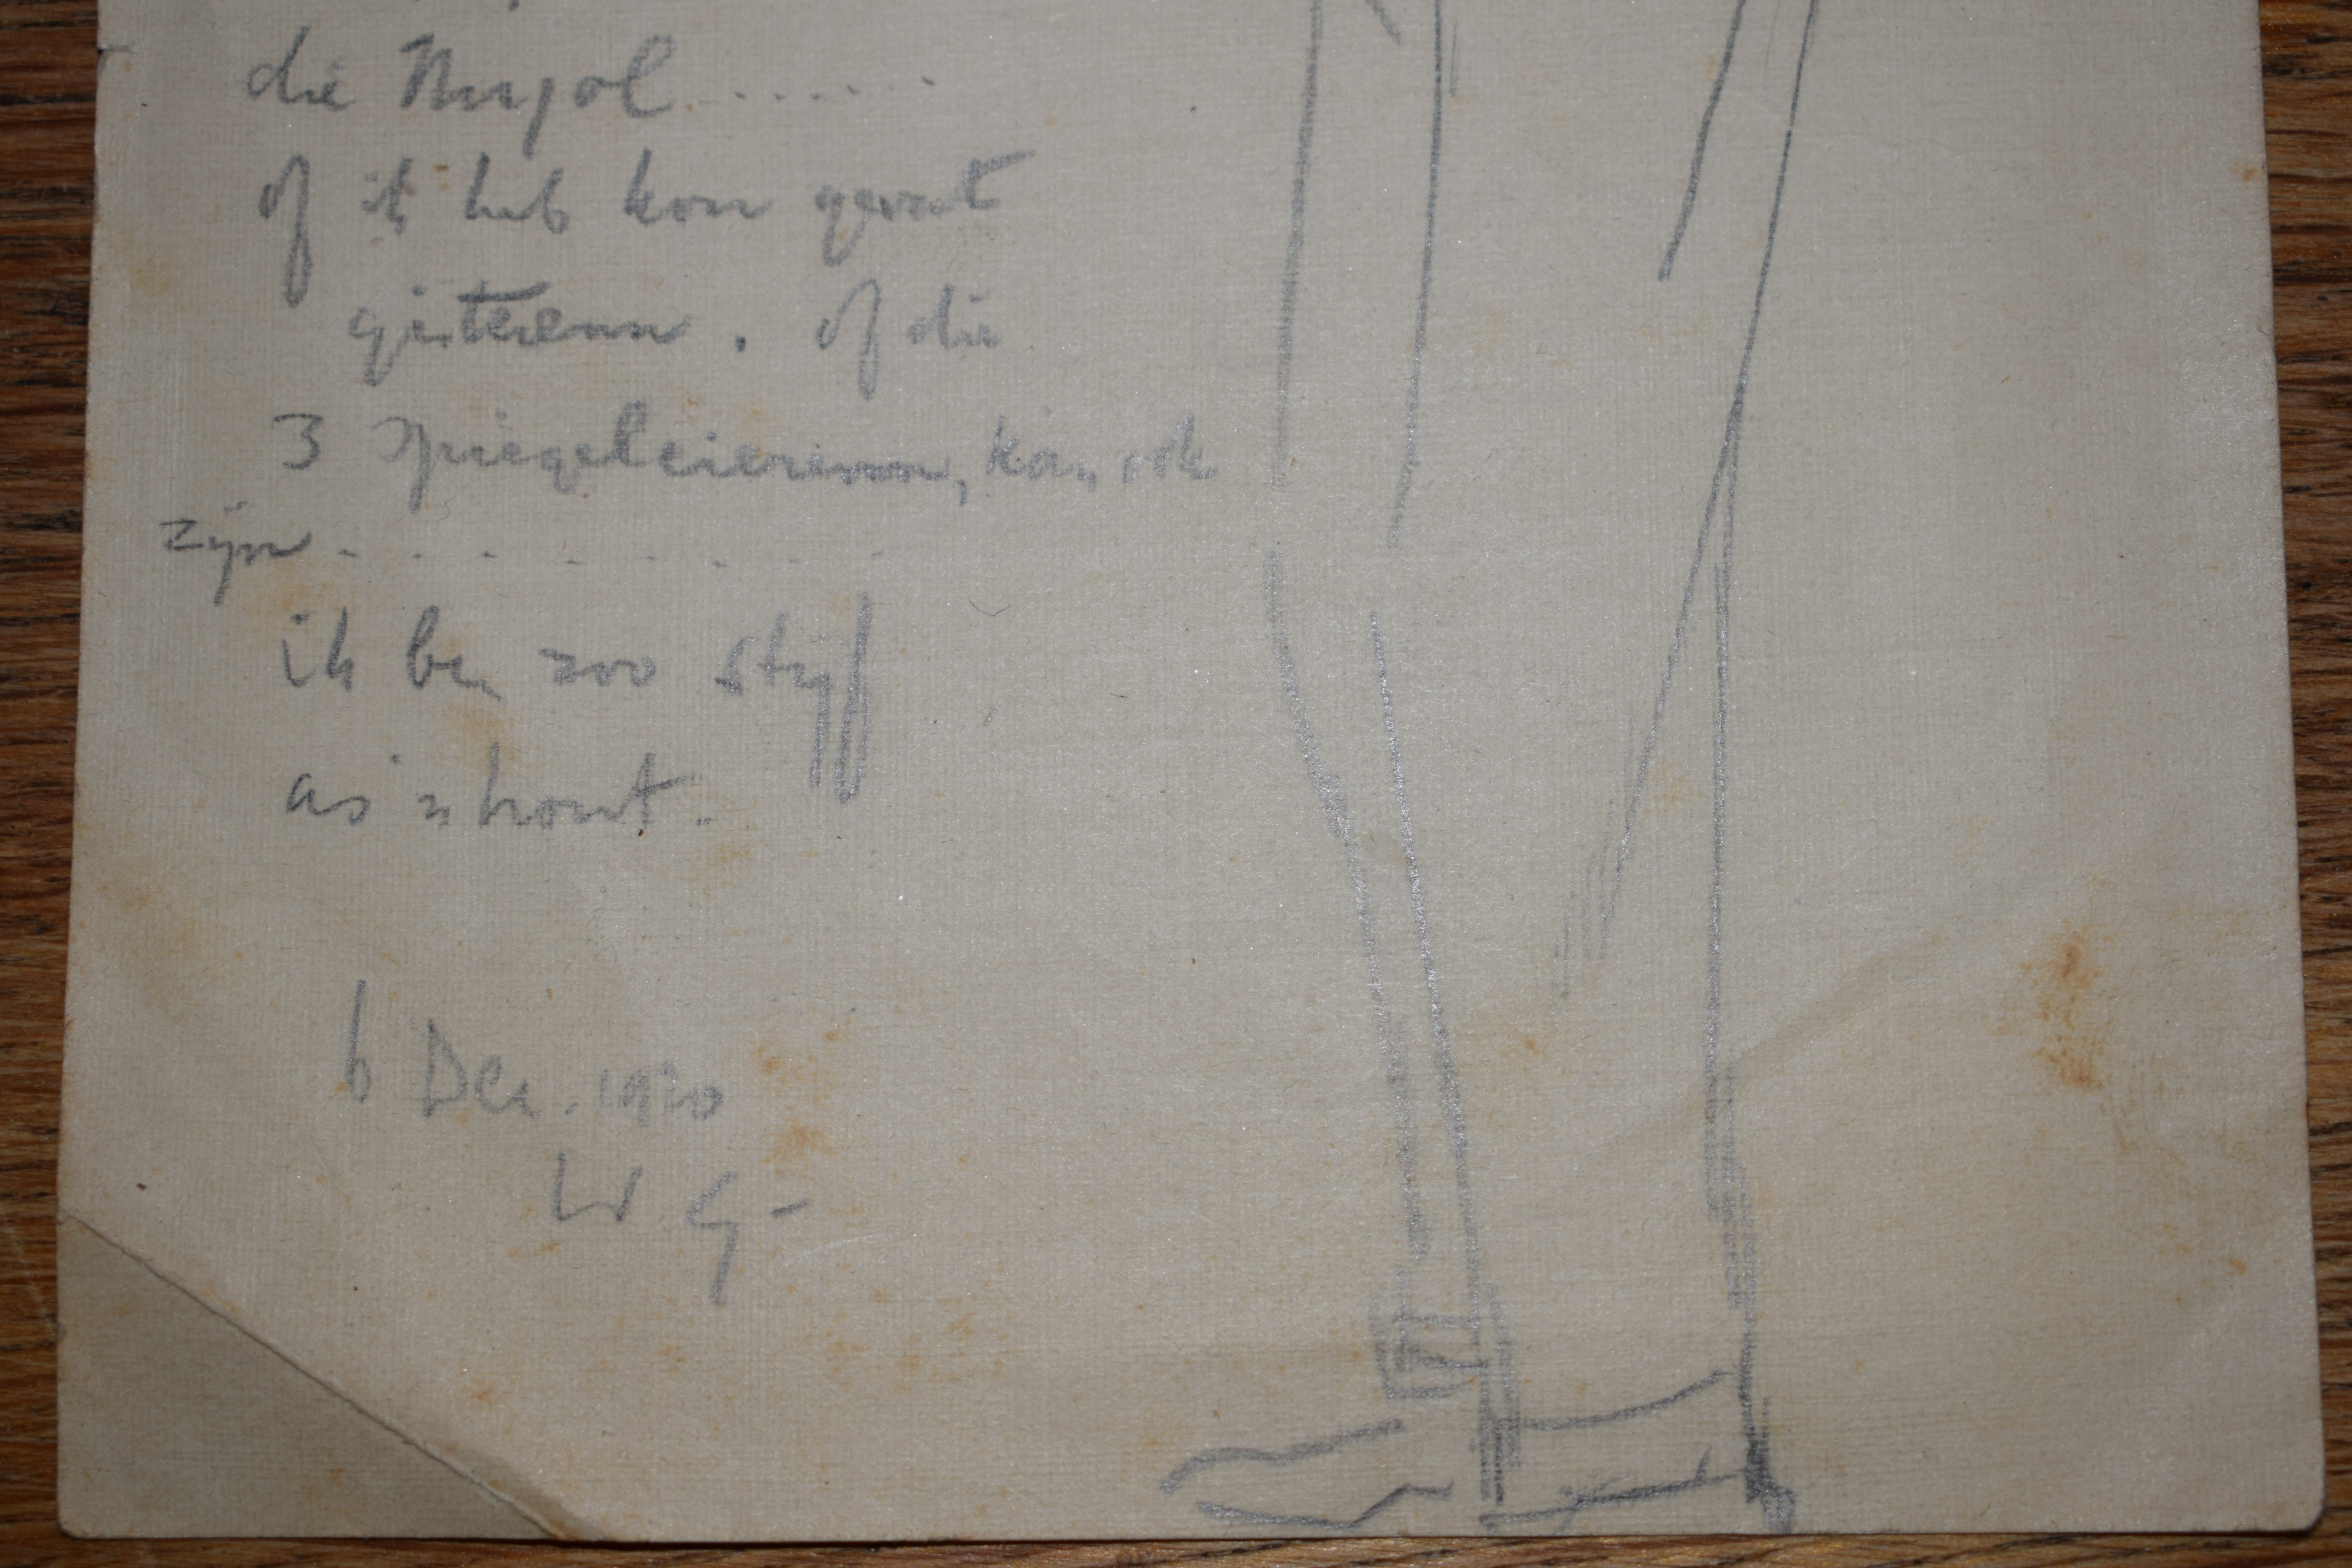 die Nujol .......
of ik heb kou gevat
gisterenn . of die
3 Spiegeleierenn, kan ook
zijn - . . . . . . .
ik ben zoo stijf
as 'n hout.
6 Dec. 1920
W G-